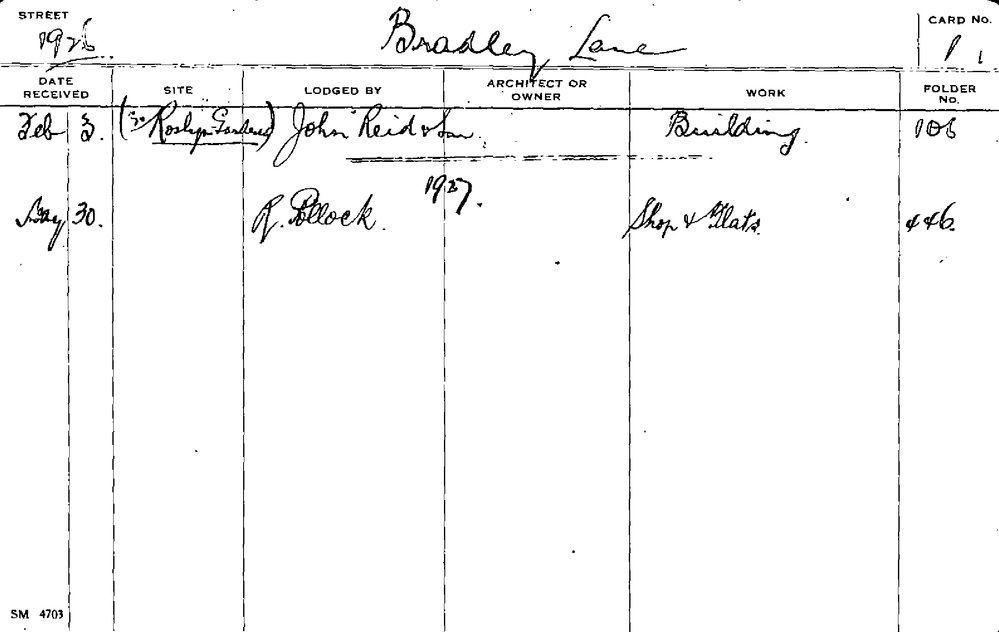 STREET
Bradley Lane
CARD No.
1926
1 1
DATE RECEIVED
SITE
LODGED BY
ARCHITECT OR OWNER
WORK
FOLDER No.
Feb 3. Roslyn Gardens) John Reid & Son. Building. 106
1927.
May 30. R. Pollock. Shop & Flats. 446.
SM 4703